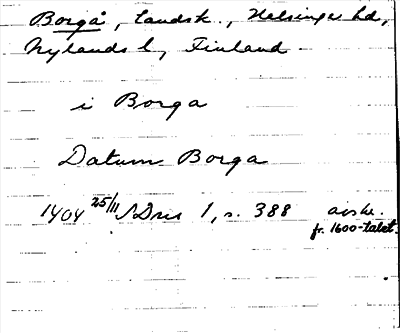 Borgå, landsk., Helsinge hd,
Nylands l, Finland
i Borga
Datum Borga
1404 25/11 SDns 1, s. 388 avskr.
fr. 1600-talet.